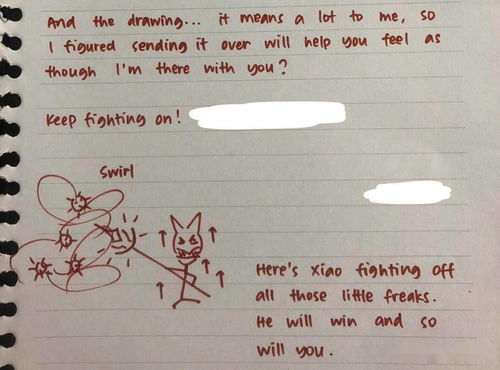 And the drawing... it means a lot to me, so
I figured sending it over will help you feel as
though I'm there with you?
Keep fighting on!
Swirl
Here's Xiao fighting off
all those little freaks.
He will win and so
will you.